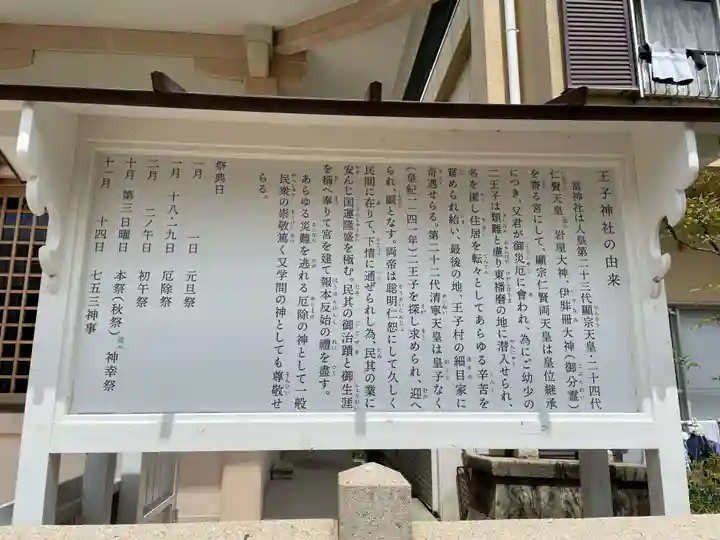 王子神社の由来
當神社は人皇第二十三代顯宗天皇・二十四代
仁賢天皇 岩星大神、伊弉冊大神(御分霊)
を齋る宮にして、顯宗仁賢両天皇は皇位継承
につき、父君が御災厄に會われ、為にご幼少の
二王子は類難と慮り東播磨の地に潜入せられ、
名を匿し住居を転々としてあらゆる辛苦を
嘗められ給い、最後の地、王子村の細目家に
奇遇せらる。第二十二代清寧天皇は皇子なく
(皇紀一一四一年)二王子を探し求められ、迎へ
られ、嗣となす。両帝は聡明仁恕にして久しく
民間に在りて、下情に通ぜられし為、民其の業に
安んじ国運隆盛を極む。民其の御治蹟と御生涯
を稱へ奉りて宮を建て報本反始の禮を盡す。
あらゆる災難を逃れる厄除の神として一般
民衆の崇敬篤く又学問の神としても尊敬せ
らる。
祭典日
一月 一日 元旦祭
一月 十八・二九日 厄除祭
二月 二ノ午日 初午祭
十月 第三日曜日 本祭(秋祭)並ニ神幸祭
十一月 十四日 七五三神事